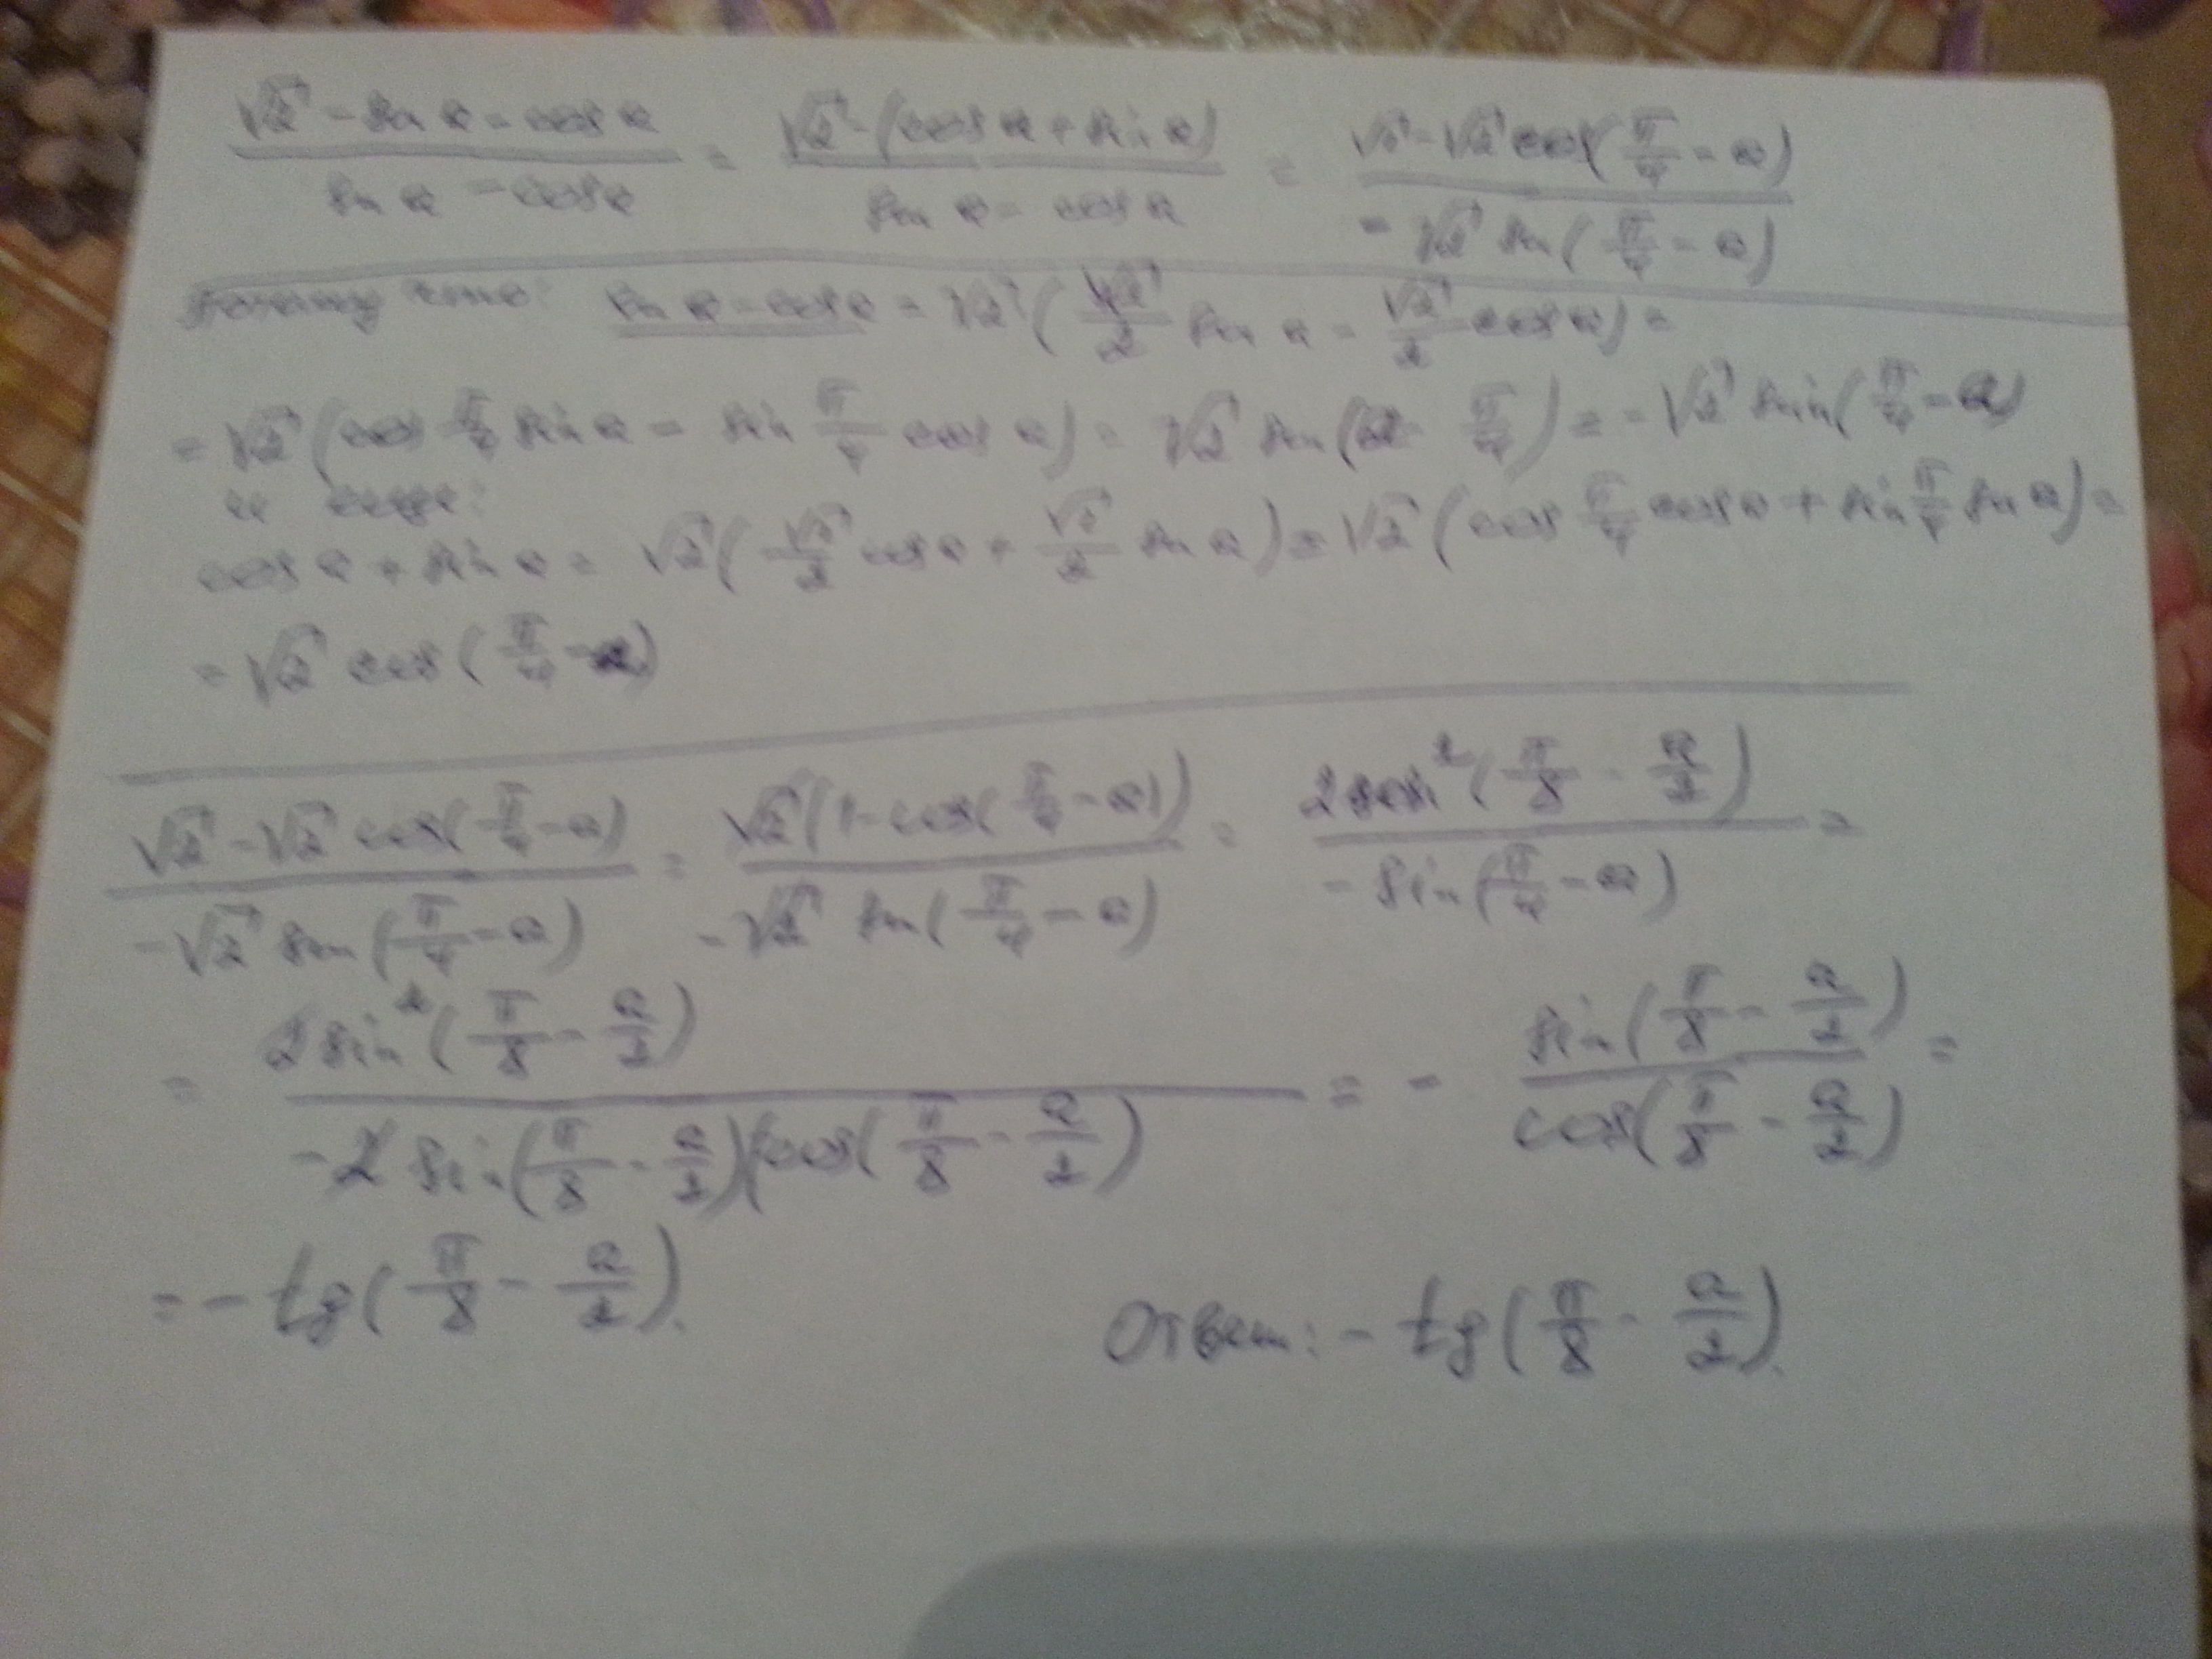 (√2 - sin a - cos a)/(sin a - cos a) = (√2 - (cos a + sin a))/(sin a - cos a) = (√2 - √2 cos(π/4 - a))/(-√2 sin(π/4 - a))
потому что: sin a - cos a = √2 (√2/2 sin a - √2/2 cos a) =
= √2 (cos π/4 sin a - sin π/4 cos a) = √2 sin(a - π/4) = -√2 sin(π/4 - a)
и
cos a + sin a = √2 (√2/2 cos a + √2/2 sin a) = √2 (cos π/4 cos a + sin π/4 sin a) =
= √2 cos(π/4 - a)
(√2 - √2 cos(π/4 - a))/(-√2 sin(π/4 - a)) = (√2 (1 - cos(π/4 - a)))/(-√2 sin(π/4 - a)) = (2 sin²(π/8 - a/2))/(-sin(π/4 - a)) =
= (2 sin²(π/8 - a/2))/(-2 sin(π/8 - a/2)(cos(π/8 - a/2)) = - sin(π/8 - a/2)/cos(π/8 - a/2) =
= - tg(π/8 - a/2).
Ответ: - tg(π/8 - a/2).